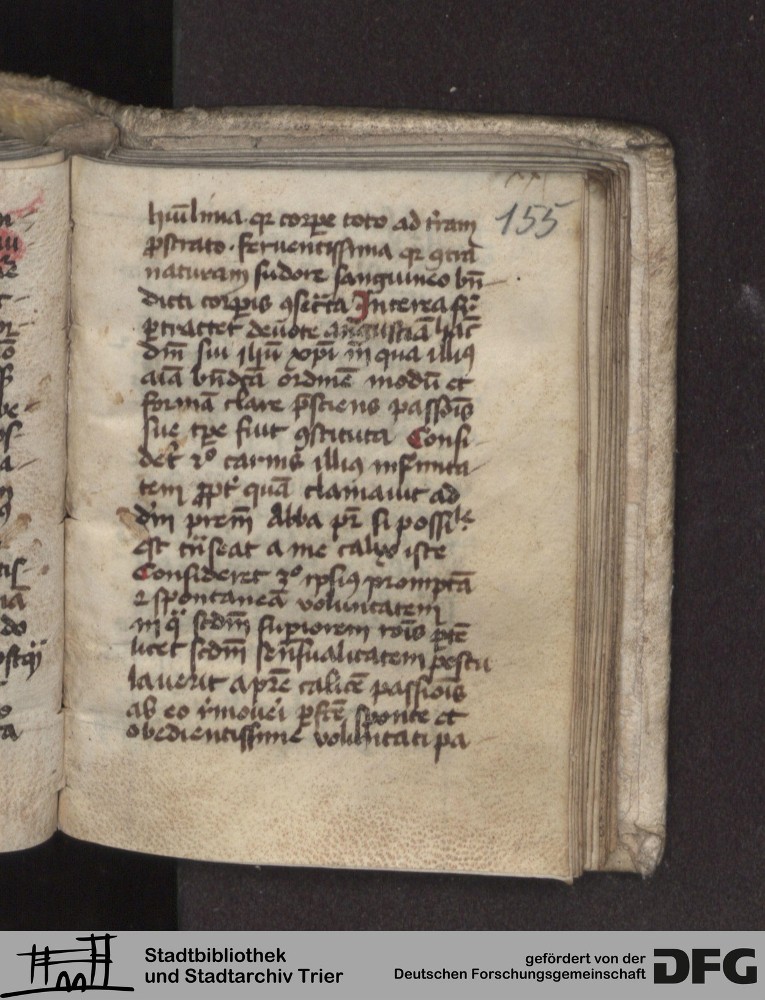 155
hūlima qr corpe toto ad trām
ꝓstrato feruentissima qr ꝯtra
naturam sudore sanguineo bn̄
dicti corpis ꝯsecr̄ta Interea
ꝑtractet deuote angustiā hāc
dn̄i sui ihū xp̄i in qua illiꝰ
aīa bn̄dcā ordinē modū et
formā clare p̄sciens passiōis
sue tꝑe fiut ꝯstituta Consi
det 2º carnis illiꝰ infirmita
tem ꝓpt quā clamauit ad
dm̄ prem̄ Abba pr̄ si possile
est trn̄seat a me calix iste
Consideret 3º ipsiꝰ promptā
⁊ spontaneā voluntatem
in q̄ scdm̄ supiorem rōis ꝑtē
licet scdm̄ sensualitatem postu
lauerit a pr̄e calicē passiōis
ab eo rͥmoueri sponte et
obedientissime voluntati pa
Stadtbibliothek
und Stadtarchiv Trier
gefördert von der
Deutschen Forschungsgemeinschaft
DFG